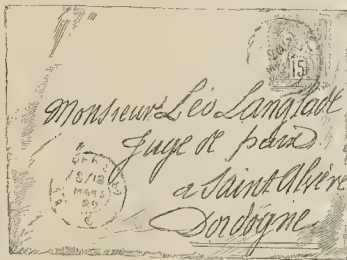 15
Monsieur Léo Langlade
Juge de paix
a Saint Alvere
Dordogne
MARS